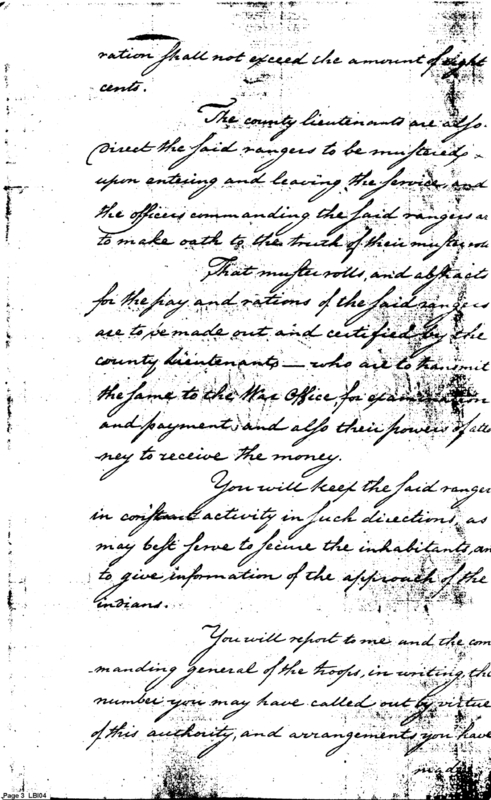 ration shall not exceed the amount of eight
cents.
The county lieutenants are also
direct the said rangers to be mustered
upon entering and leaving the service, and
the officers commanding the said rangers are
to make oath to the truth of their muster rolls
That muster rolls, and abstracts
for the pay and rations of the said rangers
are to be made out and certified by the
county lieutenants — who are to transmit
the same to the War Office for examination
and payment, and also their powers of atto
ney to receive the money.
You will keep the said rangers
in constant activity in such directions, as
may best serve to secure the inhabitants, an
to give information of the approach of the
indians.
You will report to me and the com
manding general of the troops, in writing the
number you may have called out by virtue
of this authority, and arrangements you have
made
Page 3 LBI04